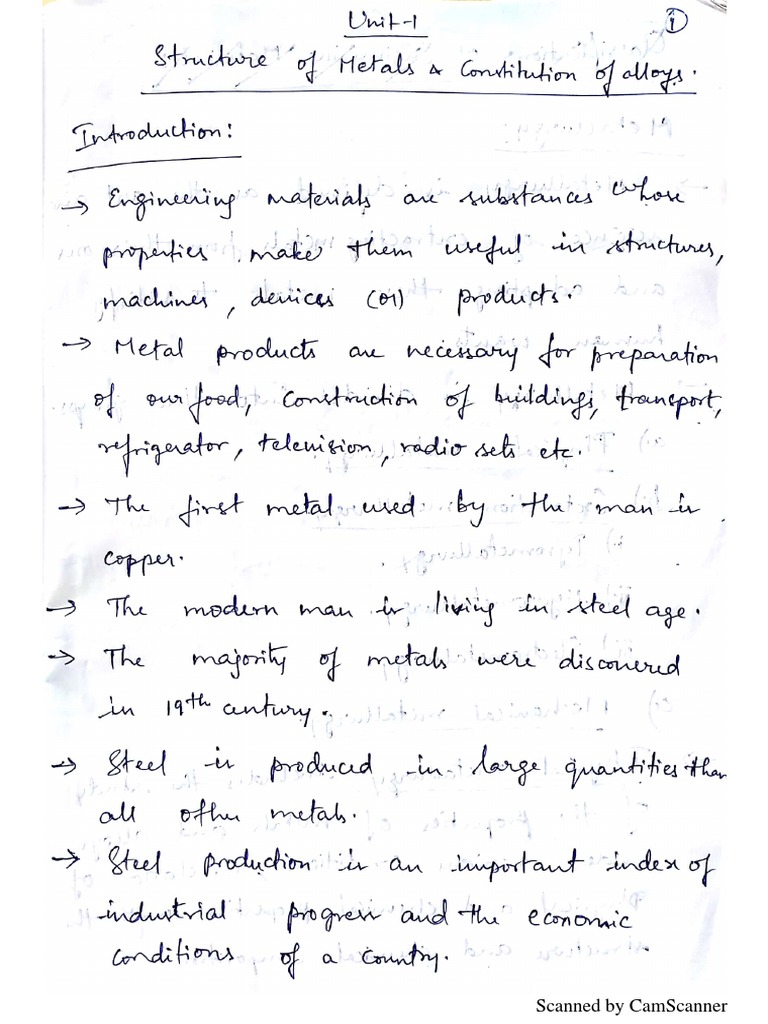 Unit-1
1
Structure of Metals & Constitution of alloys.
Introduction:
→ Engineering materials are substances whose
properties make them useful in structures,
machines, devices (or) products.
→ Metal products are necessary for preparation
of our food, construction of buildings, transport,
refrigerator, television, radio sets etc.
→ The first metal used by the man is
copper.
→ The modern man is living in steel age.
→ The majority of metals were discovered
in 19th century.
→ Steel is produced in large quantities than
all other metals.
→ Steel production is an important index of
industrial progress and the economic
conditions of a country.
Scanned by CamScanner